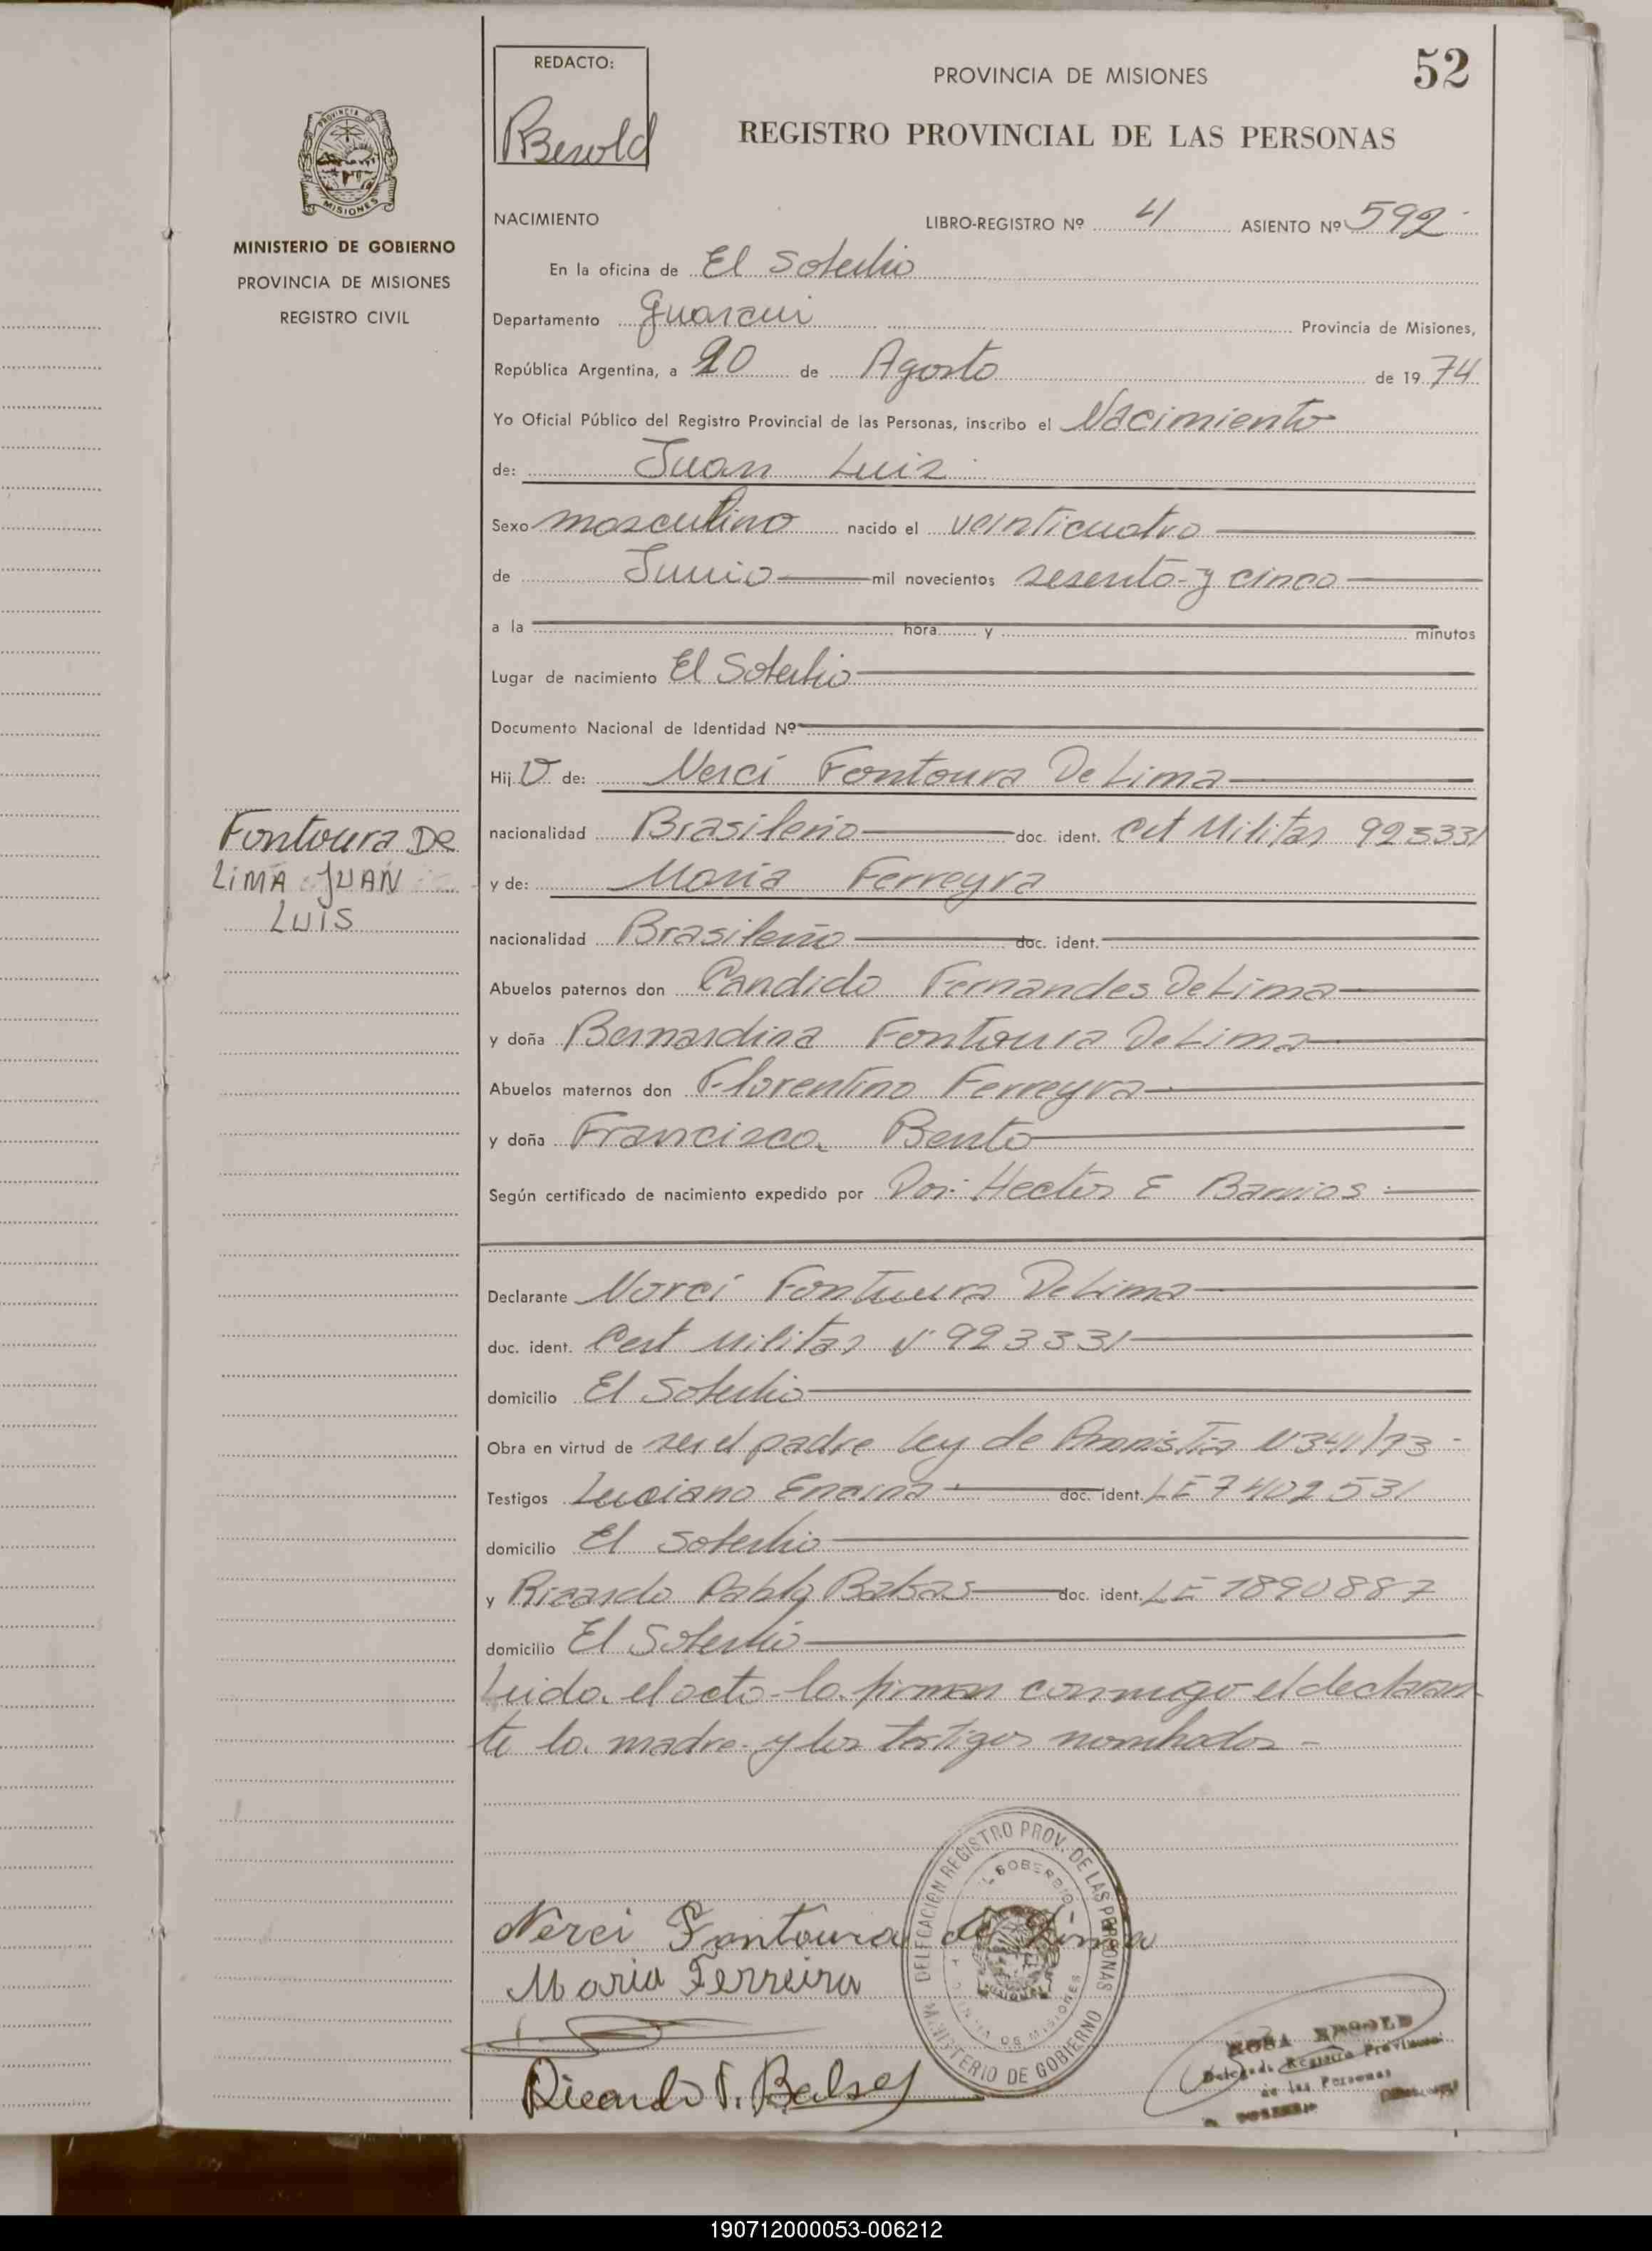 52
REDACTO:
PROVINCIA DE MISIONES
REGISTRO PROVINCIAL DE LAS PERSONAS
PROVINCIA DE
MISIONES
MINISTERIO DE GOBIERNO
PROVINCIA DE MISIONES
REGISTRO CIVIL
NACIMIENTO LIBRO-REGISTRO Nº 4 ASIENTO Nº 592
En la oficina de El Soberbio
Departamento Guarani Provincia de Misiones,
República Argentina, a 20 de Agosto de 1974
Yo Oficial Público del Registro Provincial de las Personas, inscribo el Nacimiento
de: Juan Luis
Sexo masculino nacido el veinticuatro
de Junio mil novecientos sesenta y cinco
a la hora y minutos
Lugar de nacimiento El Soberbio
Documento Nacional de Identidad Nº
Hijo de: Nerci Fontoura De Lima
nacionalidad Brasileño doc. ident. Cert Militar 923331
Fontoura De
Lima Juan
Luis
y de: Maria Ferreyra
nacionalidad Brasileña doc. ident.
Abuelos paternos don Candido Fernandes De Lima
y doña Bernardina Fontoura De Lima
Abuelos maternos don Florentino Ferreyra
y doña Francisca Bento
Según certificado de nacimiento expedido por Dor. Hector E Barrios
Declarante Nerci Fontoura De Lima
doc. ident. Cert Militar Nº 923331
domicilio El Soberbio
Obra en virtud de ser el padre Ley de Amnistia N 3411/73
Testigos Luciano Encina doc. ident. LE 7402531
domicilio El Soberbio
y Ricardo Pablo Balsas doc. ident. LE 1890887
domicilio El Soberbio
Leida el acta la firman conmigo el declaran
te la madre y los testigos nombrados
DELEGACION REGISTRO PROV. DE LAS PERSONAS
EL SOBERBIO
MINISTERIO DE GOBIERNO
Nerci Fontoura de Lima
Maria Ferreira
Ricardo P. Balsas
ROSA
Delegada Registro Provincial
de las Personas
190712000053-006212